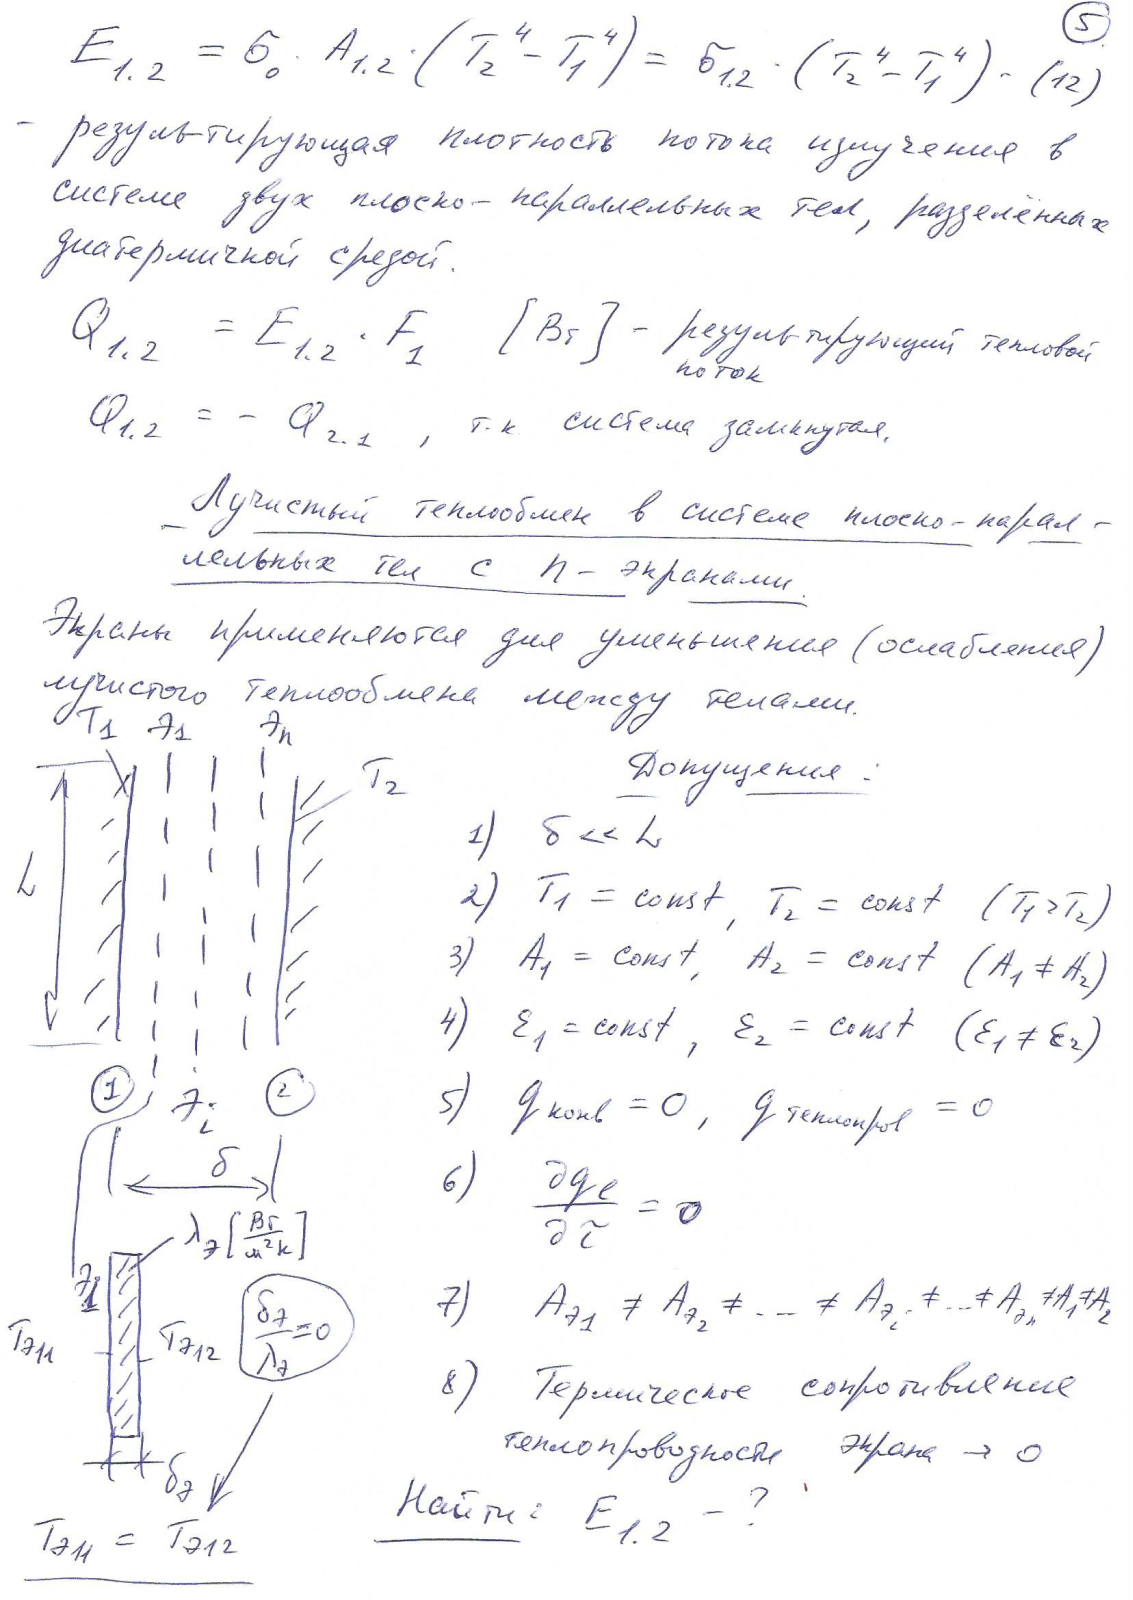 5
E₁.₂ = σ₀ · A₁.₂ · (T₂⁴ – T₁⁴) = σ₁.₂ · (T₂⁴ – T₁⁴) – (12)
– результирующая плотность потока излучения в
системе двух плоско-параллельных тел, разделённых
диатермичной средой.
Q₁.₂ = E₁.₂ · F₁ [Вт] – результирующий тепловой
поток
Q₁.₂ = – Q₂.₁ , т.к. система замкнутая.
Лучистый теплообмен в системе плоско-парал-
лельных тел с n-экранами.
Экраны применяются для уменьшения (ослабления)
лучистого теплообмена между телами.
T₁ Э₁ Эₙ
T₂
L
1 Эᵢ 2
δ
λэ [Вт/м²К]
Э1
Tэ11 Tэ12
δэ/λэ = 0
δэ
Tэ11 = Tэ12
Допущения:
1) δ << L
2) T₁ = const, T₂ = const (T₁ > T₂)
3) A₁ = const, A₂ = const (A₁ ≠ A₂)
4) ε₁ = const, ε₂ = const (ε₁ ≠ ε₂)
5) q конв = 0, q теплопров = 0
6) ∂qℓ/∂τ = 0
7) Aэ₁ ≠ Aэ₂ ≠ ... ≠ Aэᵢ ≠ ... ≠ Aэₙ ≠ A₁ ≠ A₂
8) Термическое сопротивление
теплопроводности экрана → 0
Найти: E₁.₂ – ?